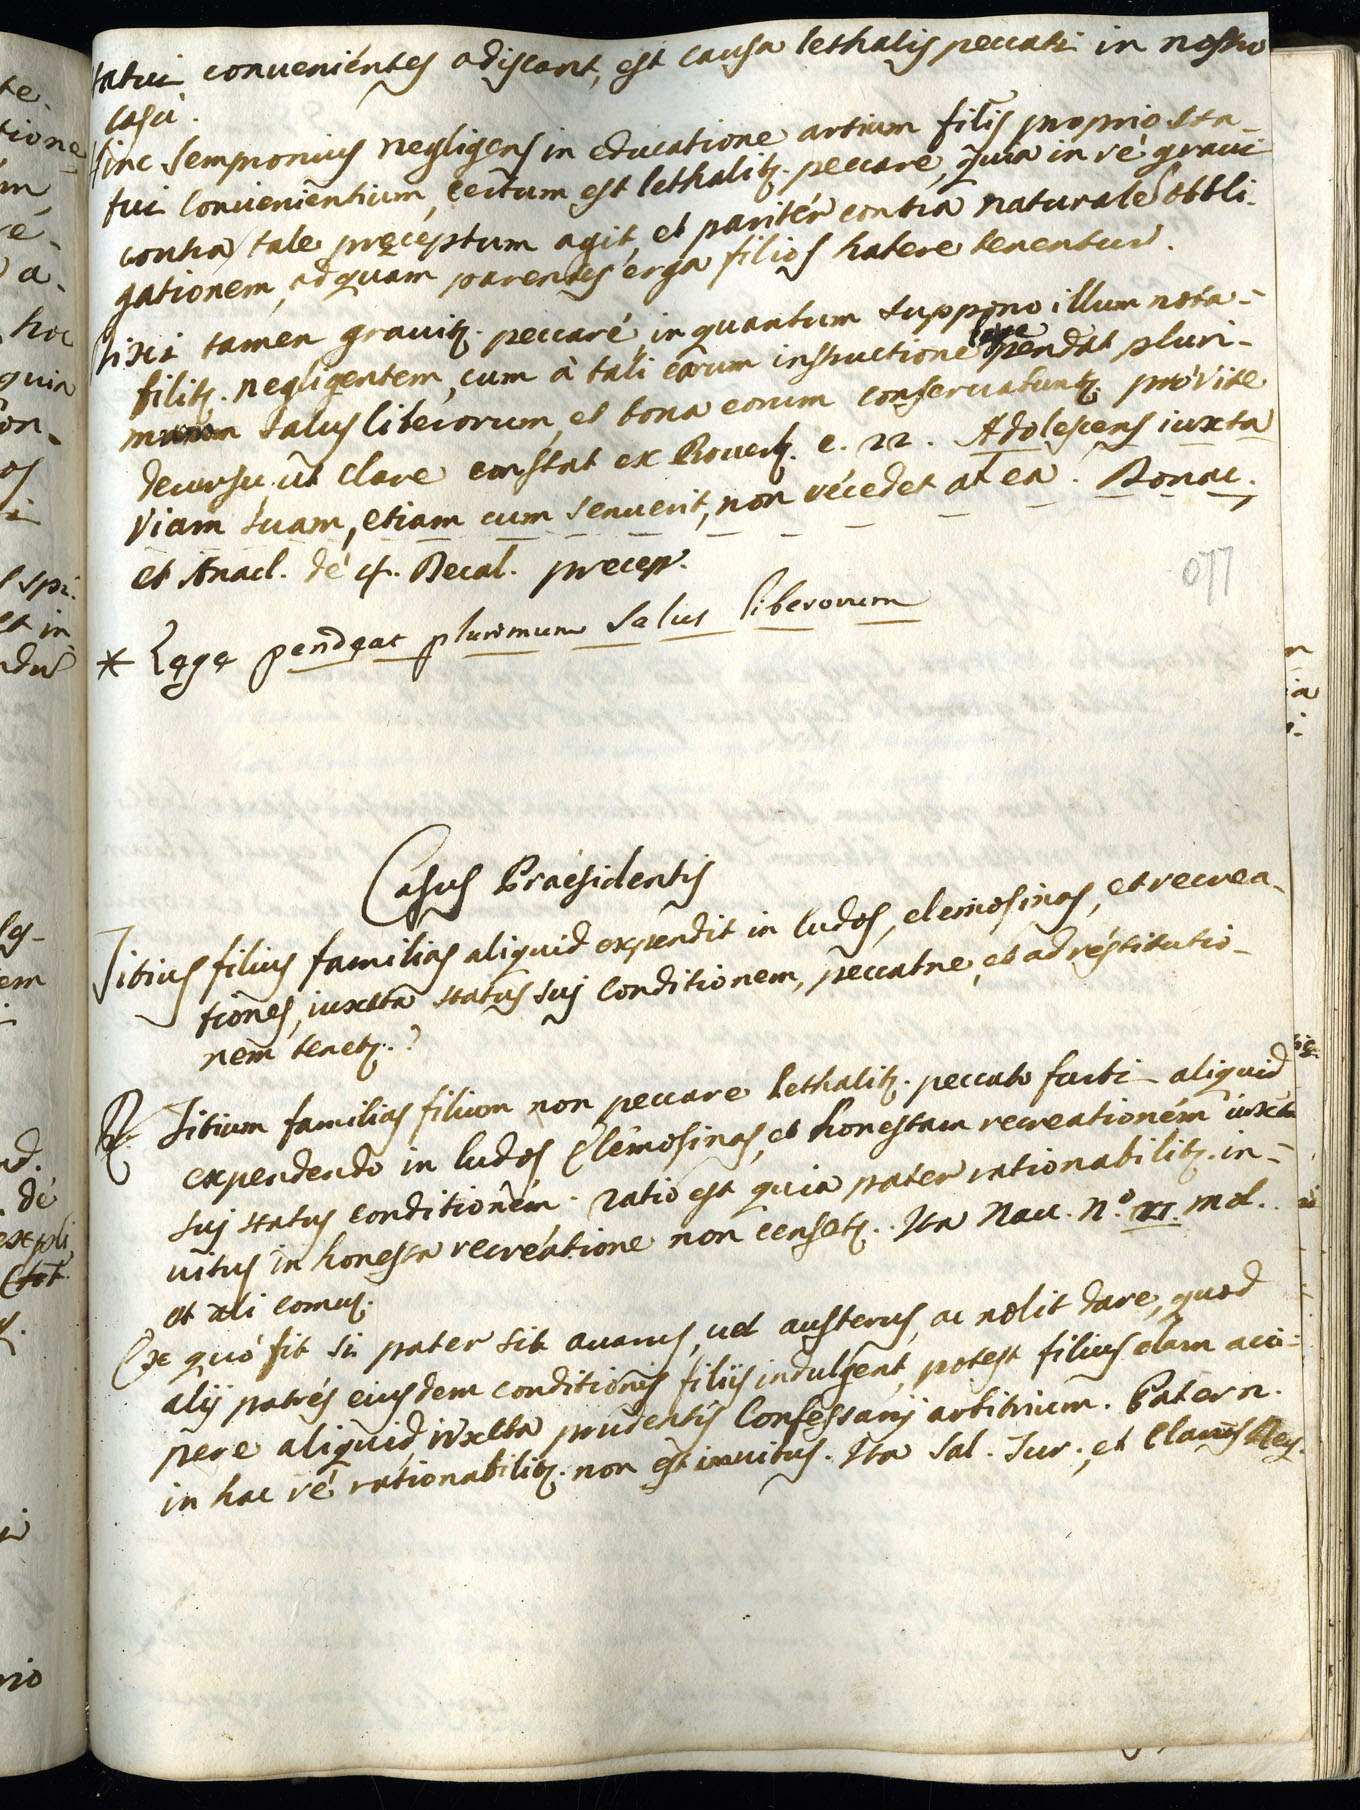 statui convenientes adiscant, est causa lethalis peccati in nostro
casu.
Hinc Sempronius negligens in educatione artium filijs proprio sta-
tui convenientium, certum est lethalitr. peccare, quia in re gravi
contra tale preceptum agit, et pariter contra naturale obbli-
gationem, ad quam parentes erga filios habere tenentur.
Dixi tamen gravitr. peccare, in quantum suppono illum nota-
bilitr. negligentem, cum à tali earum instructione pendat pluri-
mum salus liberorum, et bona eorum conservatur pro vite
decursu, ut clare constat ex Proverb. c. 22. Adolescens iuxta
viam suam, etiam cum senuerit, non recedet ab ea. Bonac.
et Anacl. de 4. Decal. precep.
077
* Lege pendeat plurimum salus liberorum
Casus Praesidentis
Titius filius familias aliquid expendit in ludos, elemosinas, et recrea-
tiones, iuxta status sui conditionem, peccatne, et ad restitutio-
nem tenetr.?
R. Titium familias filium non peccare lethalitr. peccato furti aliquid
expendendo in ludos elemosinas, et honestam recreationem iuxta
sui status conditionem. ratio est quia pater rationabilitr. in-
vitus in honesta recreatione non censetr. Ita Nav. n.o
et alii comutr.
Ex quo fit si pater sit avarus, vel austerus, ac nolit dare, quod
alij patres eiusdem conditionis filiis indulgent, potest filius clam acci-
pere aliquid iuxta prudentis Confessarij arbitrium. Pater n.
in hac re rationabilitr. non est invitus. Ita Sal. Tur., et Clavis Reg.